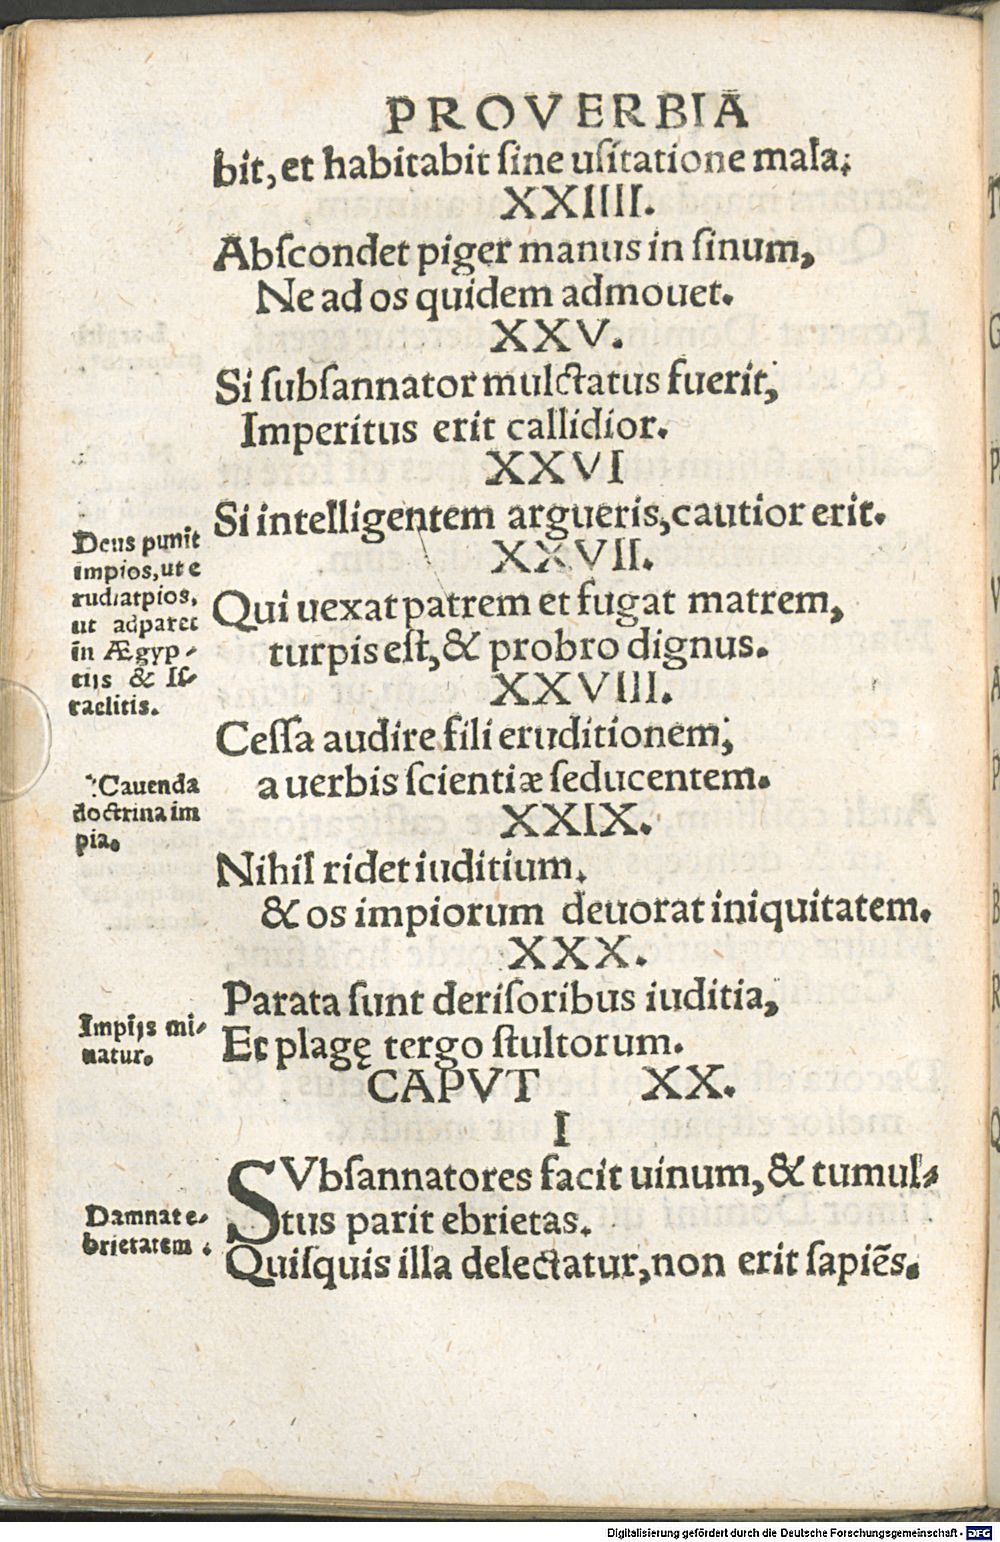 PROVERBIA
bit, et habitabit ſine uſitatione mala.
XXIIII.
Abſcondet piger manus in ſinum,
Ne ad os quidem admouet.
XXV.
Si ſubſannator mulctatus fuerit,
Imperitus erit callidior.
XXVI
Si intelligentem argueris, cautior erit.
XXVII.
Qui uexat patrem et fugat matrem,
turpis eſt, & probro dignus.
XXVIII.
Ceſſa audire fili eruditionem,
a uerbis ſcientiæ ſeducentem.
XXIX.
Nihil ridet iuditium.
& os impiorum deuorat iniquitatem.
XXX.
Parata ſunt deriſoribus iuditia,
Et plagę tergo ſtultorum.
CAPVT XX.
I
SVbſannatores facit uinum, & tumul-
tus parit ebrietas.
Quiſquis illa delectatur, non erit ſapiẽs.
Deus punit
impios, ut e
rudiat pios,
ut adparet
in Ægyp-
tijs & Iſ-
raelitis.
Cauenda
doctrina im
pia.
Impijs mi-
natur.
Damnat e-
brietatem.
Digitalisierung gefördert durch die Deutsche Forschungsgemeinschaft - DFG